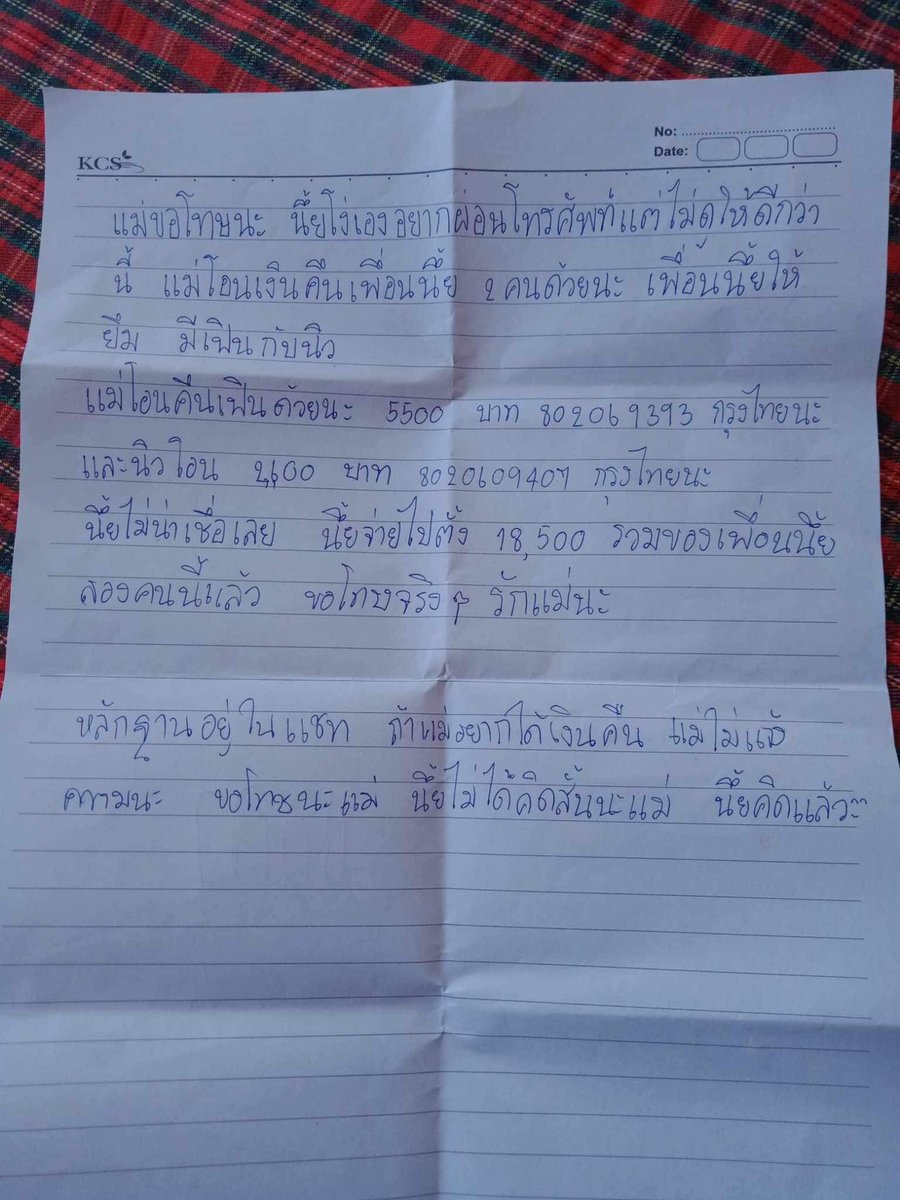 KCS
No:
Date:
แม่ขอโทษนะ นี้ยโง่เองอยากผ่อนโทรศัพท์แต่ไม่ดูให้ดีกว่า
นี้ แม่โอนเงินคืนเพื่อนนี้ย 2 คนด้วยนะ เพื่อนนี้ยให้
ยืม มีเฟินกับนิว
แม่โอนคืนเฟินด้วยนะ 5500 บาท 802069393 กรุงไทยนะ
และนิวโอน บาท 8020609407 กรุงไทยนะ
นี้ยไม่น่าเชื่อเลย นี้ยจ่ายไปตั้ง 18,500 รวมของเพื่อนนี้ย
สองคนนี้แล้ว ขอโทษจริงๆ รักแม่นะ
หลักฐานอยู่ในแชท ถ้าแม่อยากได้เงินคืน แม่ไปแจ้
ความนะ ขอโทษนะแม่ นี้ยไม่ได้คิดสั้นนะแม่ นี้ยคิดแล้ว